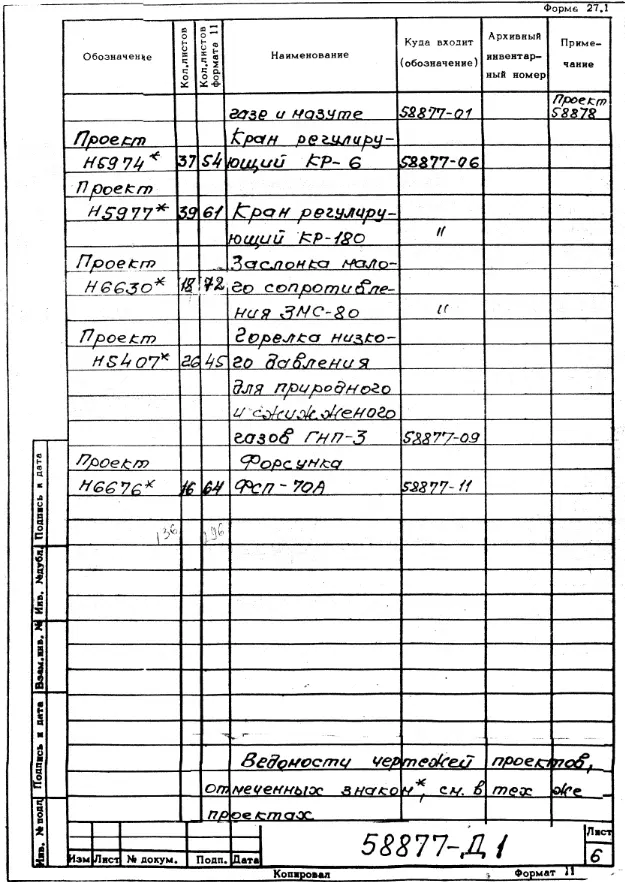 Форма 27.1
Обозначение Кол.листов Кол.листов формата 11 Наименование Куда входит (обозначение) Архивный инвентар-ный номер Приме-чание
Проект
газе и мазуте 58877-01 58878
Проект Кран регулиру-
Н5974* 37 54 ющий КР-6 58877-06
Проект
Н5977* 39 61 Кран регулиру-
ющий КР-180 "
Проект Заслонка мало-
Н6630* 18 72 го сопротивле-
ния ЗМС-80 "
Проект Горелка низко-
Н5407* 26 45 го давления
для природного
и сжиженого
газов ГНП-3 58877-09
Проект Форсунка
Н6676* 16 64 ФСП-70А 58877-11
136 296
Ведомости чертежей проектов,
отмеченных знаком*, см. в тех же
проектах
Инв. № подл Подпись и дата Взам.инв. № Инв. №дубл. Подпись и дата
58877-Д1
Лист
6
Изм Лист № докум. Подп. Дата
Копировал Формат 11